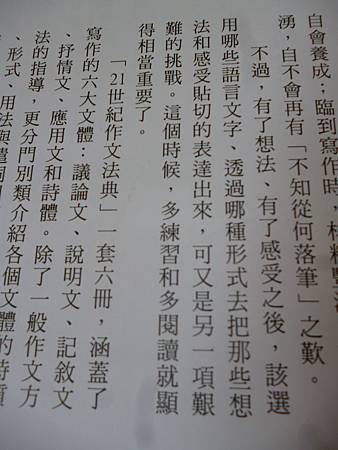 自會養成；臨到寫作時，材料豐
湧，自不會再有「不知從何落筆」之歎。
不過，有了想法、有了感受之後，該選
用哪些語言文字、透過哪種形式去把那些想
法和感受貼切的表達出來，可又是另一項艱
難的挑戰。這個時候，多練習和多閱讀就顯
得相當重要了。
「21世紀作文法典」一套六冊，涵蓋了
寫作的六大文體：議論文、說明文、記敘文
、抒情文、應用文和詩體。除了一般作文方
法的指導，更分門別類介紹各個文體的特質
、形式、用法與遣詞